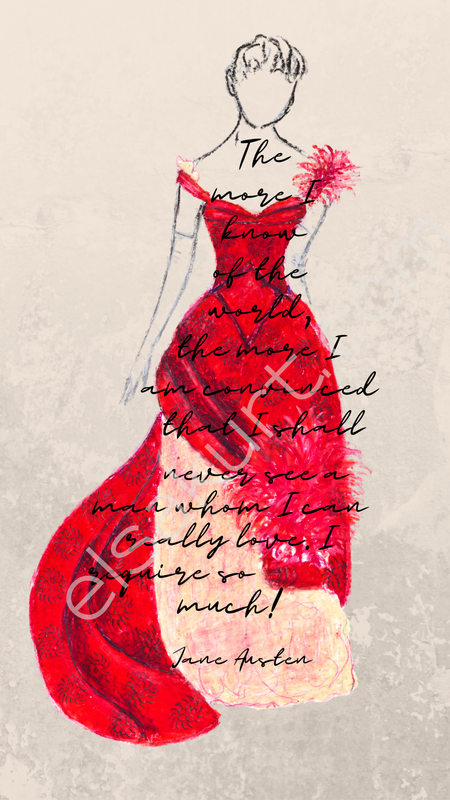 The
more I
know
of the
world,
the more I
am convinced
that I shall
never see a
man whom I can
really love. I
require so
much!
Jane Austen